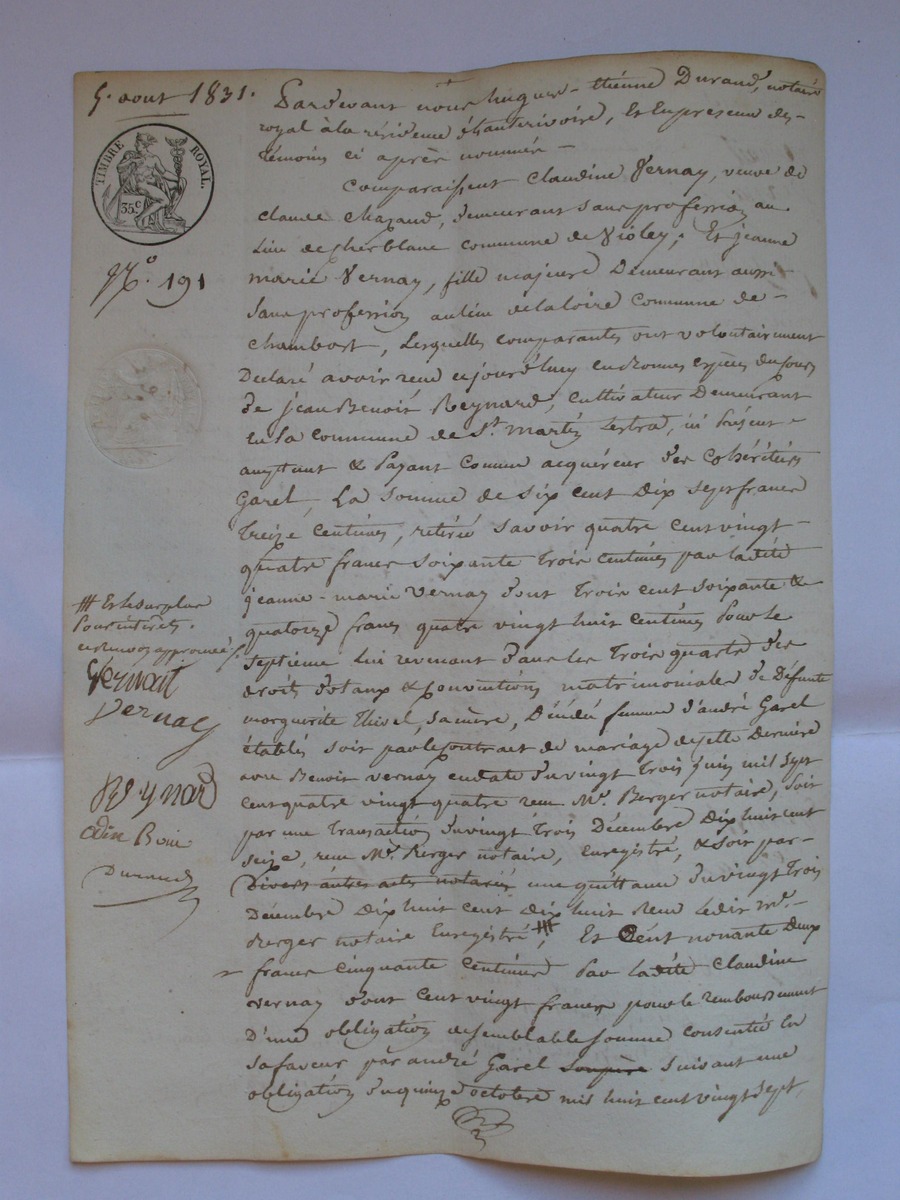 5. aout 1831.
TIMBRE ROYAL.
35c
No. 191
Pardevant nous hugues-étienne Durand, notaire
royal à la résidence d'hauterivoire, Et en presence des
témoins ci après nommés
Comparaissent Claudine Vernay, veuve de
claude Chazaud, demeurant sans profession au
Lieu de cherblanc commune de Violey; Et jeanne
marie Vernay, fille majeure Demeurant aussi
Sans profession au lieu de commune de
Chambost, Lesquelles comparantes ont volontairement
Déclaré avoir reçu cejourd'huy en bonnes espèces du Cours
de jean Benoit Reynard, Cultivateur Demeurant
En la commune de St. Martin Lestra, ici présent
acceptant & payant comme acquéreur des Cohéritiers
Garel, La somme de Six cent dix sept francs
treize centimes, retirée savoir quatre cent vingt
quatre francs soixante trois centimes par ladite
jeanne-marie Vernay dont trois cent soixante &
quatorze francs quatre vingt huit centimes pour le
Septième lui revenant dans les trois quarts des
droits dotaux & conventions matrimoniales de Défunte
marguerite Thivel, sa mère, Décédée femme d'andré Garel
établis soit par le contrat de mariage de cette dernière
avec Benoit Vernay en date du vingt trois juin mil sept
cent quatre vingt quatre reçu Me. Berger notaire, soit
par une transaction du vingt trois Décembre dix huit cent
seize, reçu Me. Berger notaire, enregistré, & soit par
Divers autres actes notariés une quittance du vingt trois
Décembre dix huit cent dix huit reçu ledit me.
Berger notaire Enregistré #, Et Cent nonante deux
francs cinquante centimes par ladite Claudine
Vernay dont cent vingt francs pour le remboursement
D'une obligation de semblable somme consentie en
sa faveur par andré Garel son père suivant une
obligation du quinze octobre mil huit cent vingt sept
# Et le surplus
pour intérêts.
renvoi approuvé
Vernay
Reynard
Durand